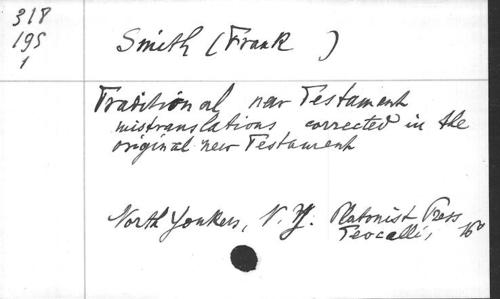 318
195
1
Smith (Frank )
Traditional new Testament
mistranslations corrected in the
original new Testament
North Yonkers, N. Y. Platonist Press
Teocalli, 16°